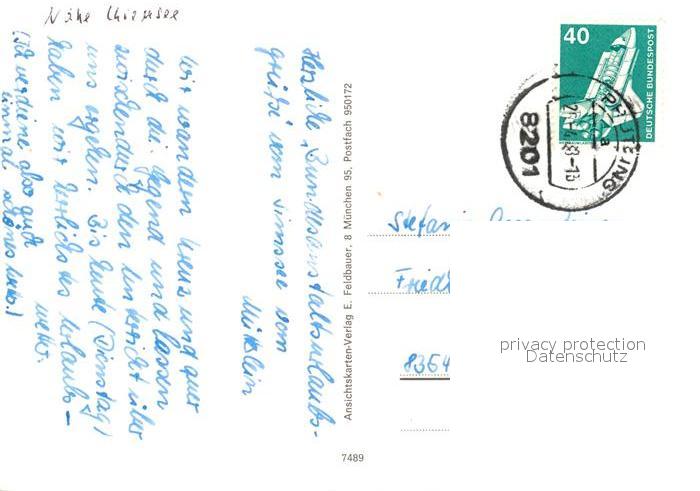 Nähe Chiemsee
Herzliche „Bundesanstaltsurlaubs-
grüße vom Simssee von
Mütterlein
Wir wandern kreuz und quer
durch die Gegend und lassen
zwischendurch den
uns ergehen. Bis heute (Dienstag)
haben wir herrliches Urlaubs-
wetter.
(Ich verdiene also gute
einmal
Ansichtskarten-Verlag E. Feldbauer, 8 München 95, Postfach 950172
7489
40
DEUTSCHE BUNDESPOST
8201
-18
a
Stefan
Fried
8364
privacy protection
Datenschutz